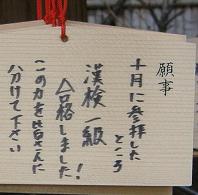 願事
十月に参拝した
ところ
漢検 一級
合格しました!
この力を皆さんに
分けて下さい